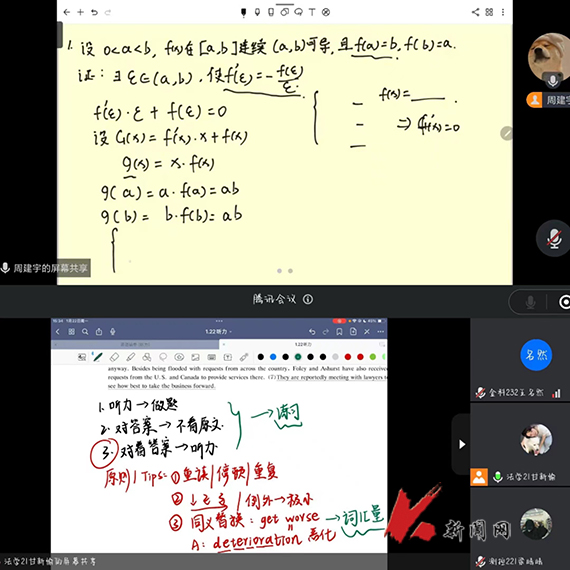 1. 设 0<a<b, f(x)在[a,b]连续 (a,b)可导, 且f(a)=b, f(b)=a.
证: ∃ξ∈(a,b), 使f'(ξ)=-f(ξ)/ξ.
f'(ξ)·ξ+f(ξ)=0
f(x)=
设 G(x)=f'(x)·x+f(x)
g(x)=x·f(x)
g(a)=a·f(a)=ab
g(b)=b·f(b)=ab
周建宇的屏幕共享
腾讯会议
1.22听力
1.22听力
anyway. Besides being flooded with requests from across the country, Foley and Ashurst have also receive
requests from the U.S. and Canada to provide services there. (7) They are reportedly meeting with lawyers to
see how best to take the business forward.
1. 听力→做题
2. 对答案→不看原文.
3. 对着答案→听力
原则/Tips: ① 重读/停顿/重复
② 例外→极小
③ 同义替换: get worse →词汇量
A: deterioration 恶化
名然
金科232王名然
法学21甘新愉
测控221
法学21甘新愉的屏幕共享
新闻网